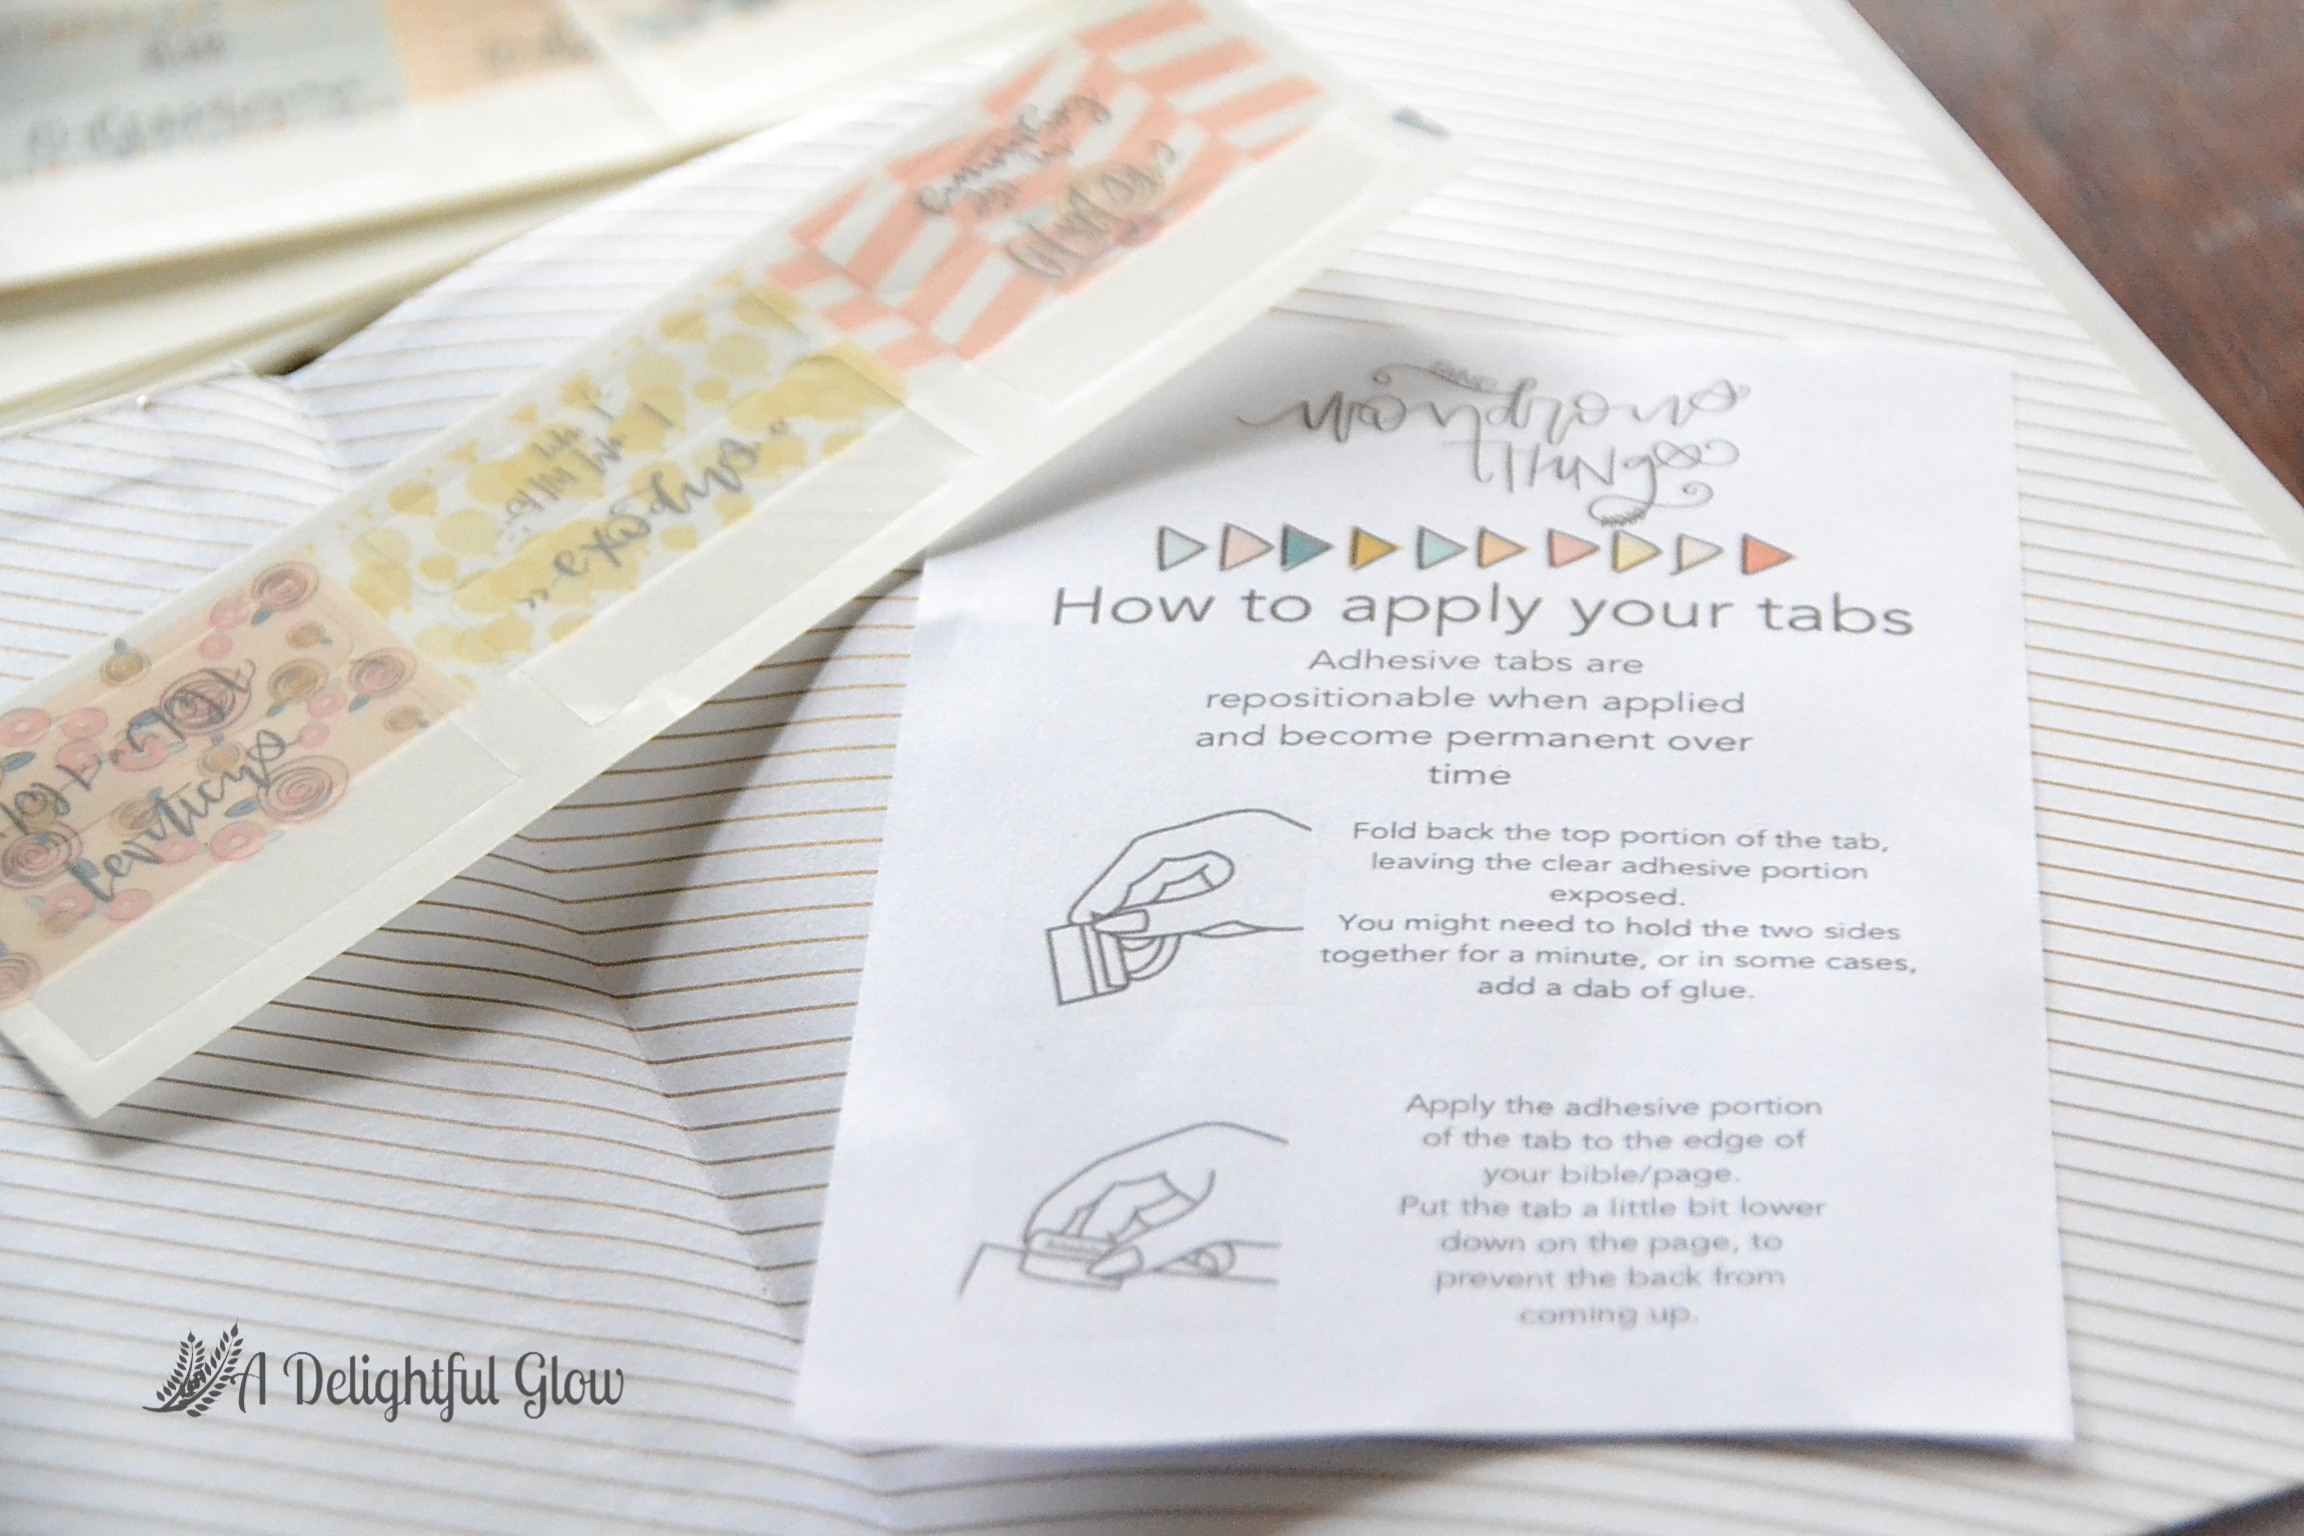 wondrous
THINGS
How to apply your tabs
Adhesive tabs are
repositionable when applied
and become permanent over
time
Fold back the top portion of the tab,
leaving the clear adhesive portion
exposed.
You might need to hold the two sides
together for a minute, or in some cases,
add a dab of glue.
Apply the adhesive portion
of the tab to the edge of
your bible/page.
Put the tab a little bit lower
down on the page, to
prevent the back from
coming up.
exodus
leviticus
A Delightful Glow